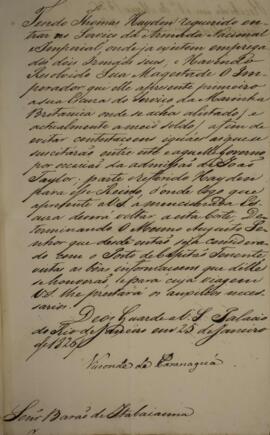 Tendo Thomas Haydem requerido en-
trar no Serviço da Armada Nacional
e Imperial, onde ja existem emprega
dos dois Irmãos seus, e Havendo
Resolvido Sua Magestade O Im-
perador que elle apresente primeiro
a sua Baxa do Serviço da Marinha
Britanica onde se acha alistado, e
actualmente a meio soldo, a fim de
evitar contestaçoens iguaes as que se
suscitarão entre este e aquelle Governo
por occasião da admissão de João
Taylor: parte o referido Haydem
para esse Reino d'onde logo que
apresente a V.S. a mencionada Es
cusa deverá voltar a esta Corte, De-
terminando O Mesmo Augusto Se-
nhor que desde então seja considera
do com o Posto de Capitão Tenente,
vistas as boas informaçoens que delle
se houverão, e para cuja viagem
V.S. lhe prestará os auxilios neces-
sarios.
Deos Guarde a V.S. Palacio
do Rio de Janeiro em 25 de Janeiro
de 1826
Visconde de Paranaguá
Senr. Barão de Itabaianna